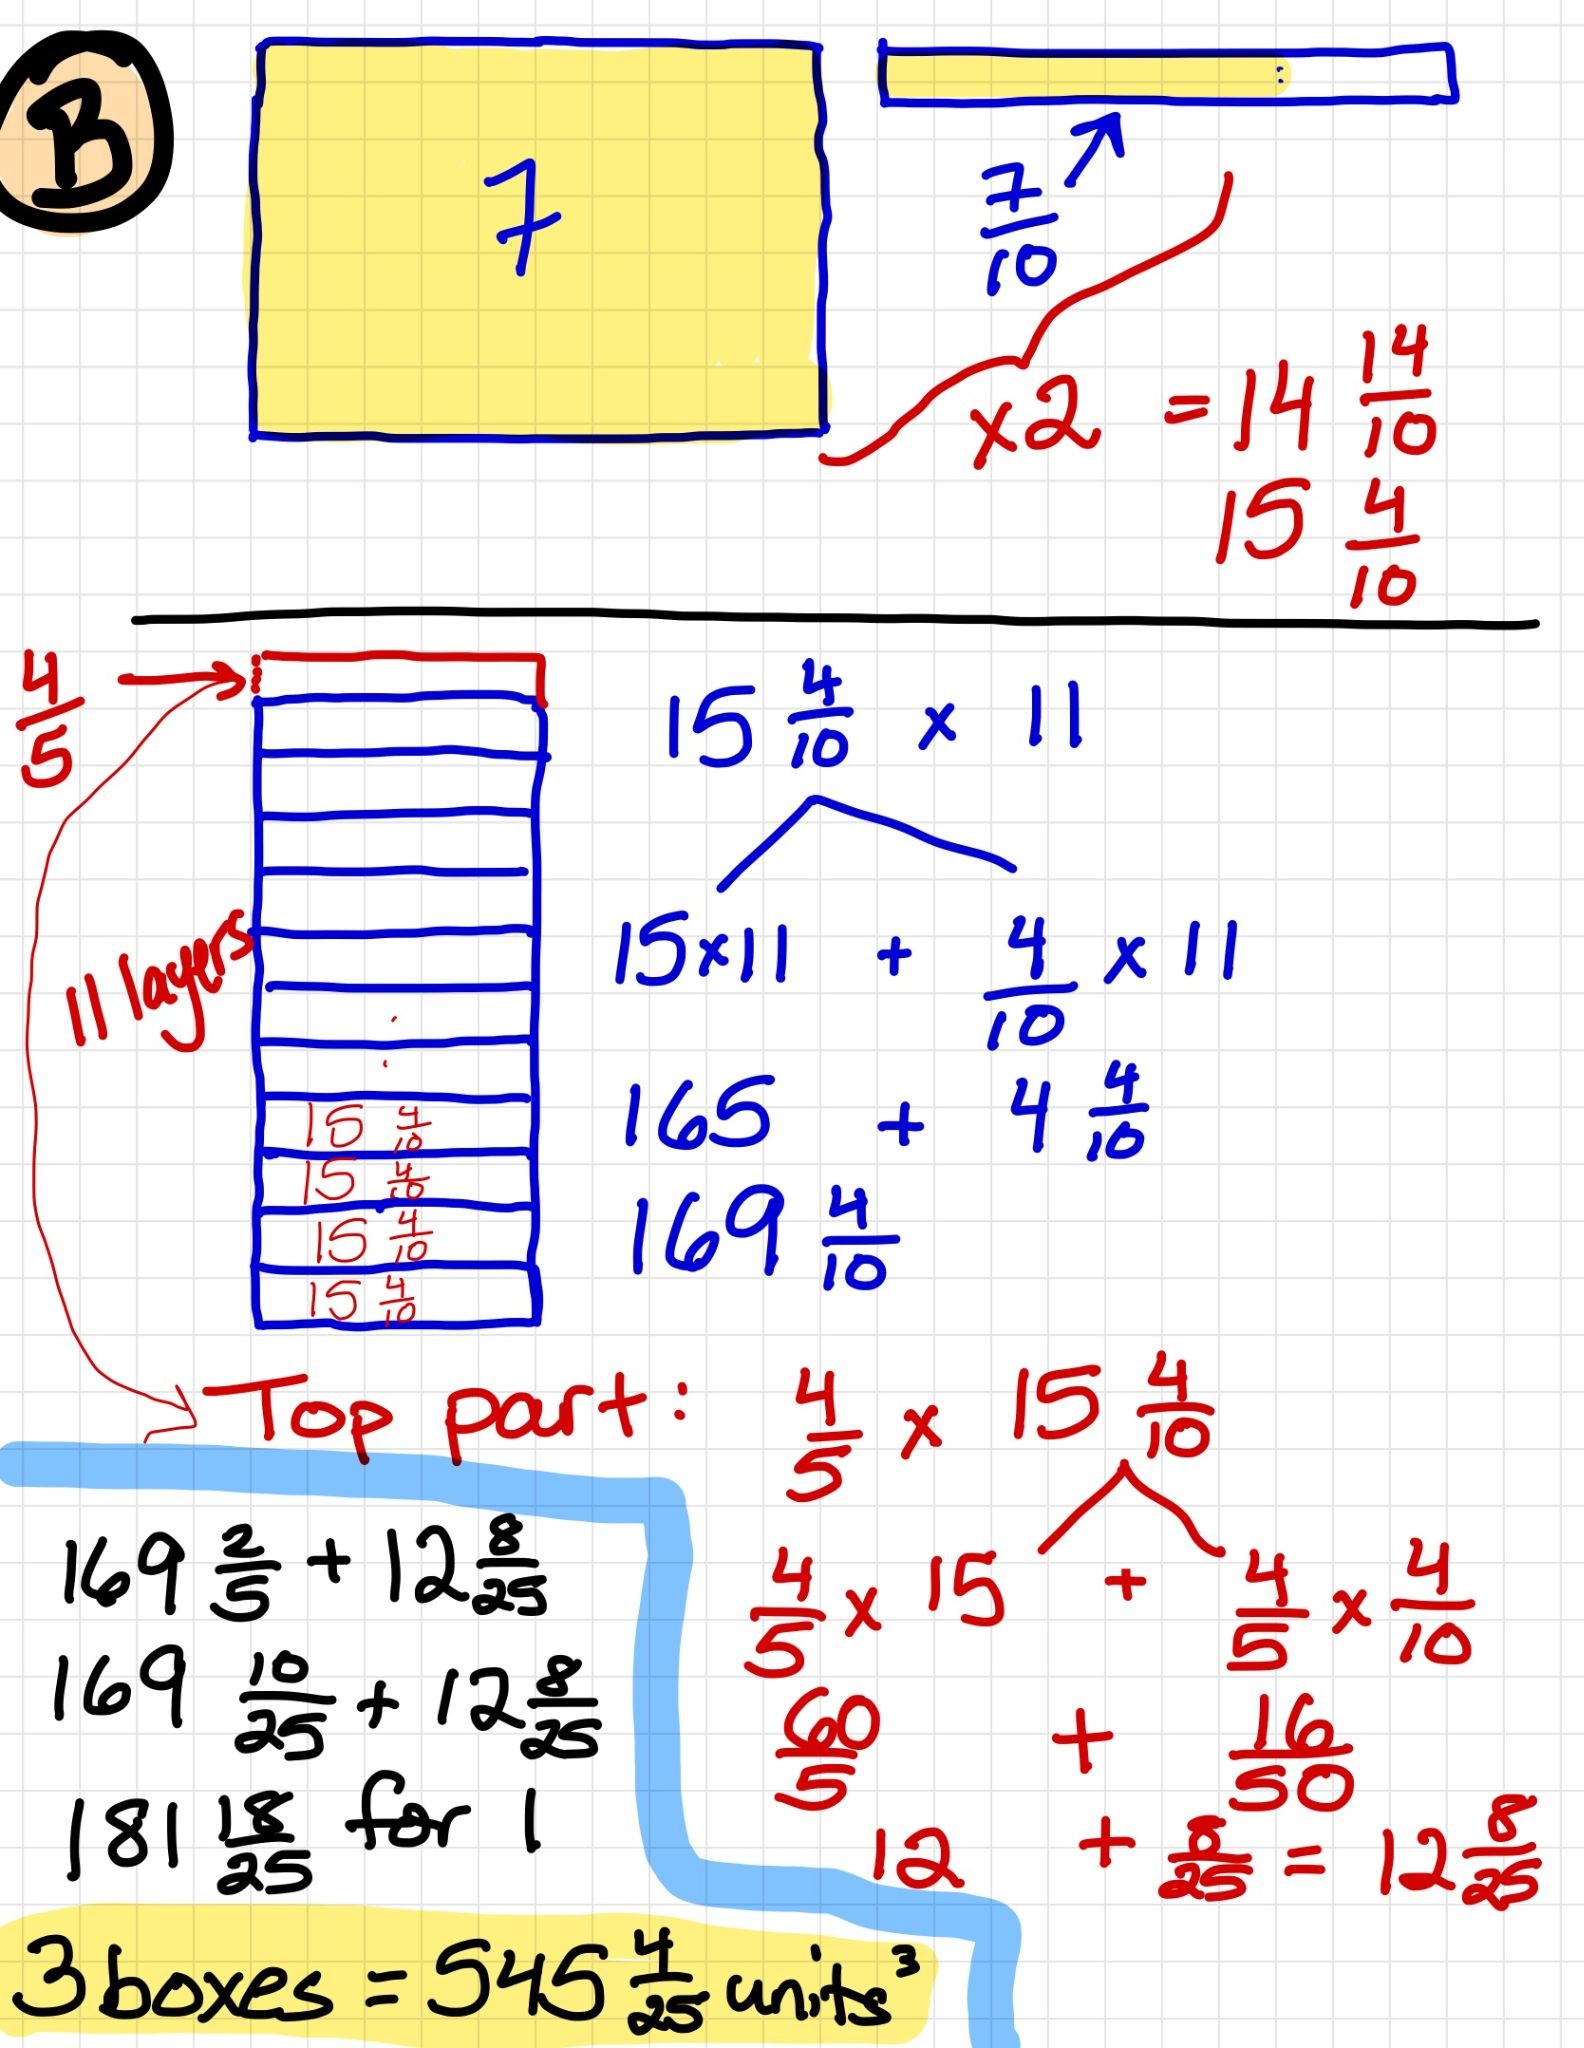 B
7
7/10
×2 = 14 14/10
15 4/10
4/5
11 layers
15 4/10
15 4/10
15 4/10
15 4/10
15 4/10 × 11
15×11 + 4/10 × 11
165 + 4 4/10
169 4/10
Top part: 4/5 × 15 4/10
4/5 × 15 + 4/5 × 4/10
60/5 + 16/50
12 + 8/25 = 12 8/25
169 2/5 + 12 8/25
169 10/25 + 12 8/25
181 18/25 for 1
3 boxes = 545 4/25 units³